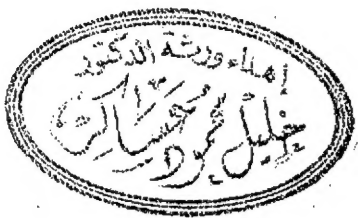 إهداء ورثة الدكتور
خليل محمود عساكر